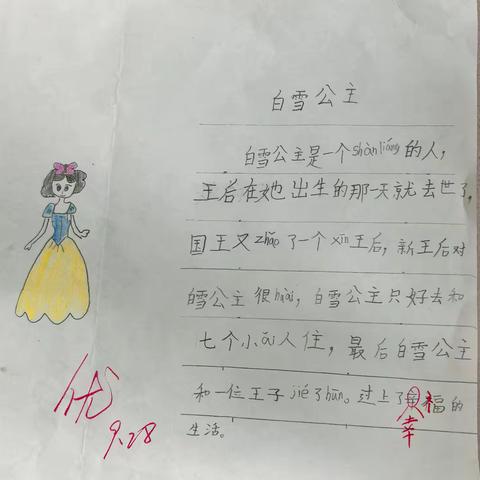 白雪公主
白雪公主是一个shànliáng的人，
王后在她出生的那一天就去世了，
国王又zhǎo了一个xīn王后，新王后对
白雪公主很huài，白雪公主只好去和
七个小ǎi人住，最后白雪公主
和一位王子jié了hūn。过上了幸福的
生活。
优
9.28